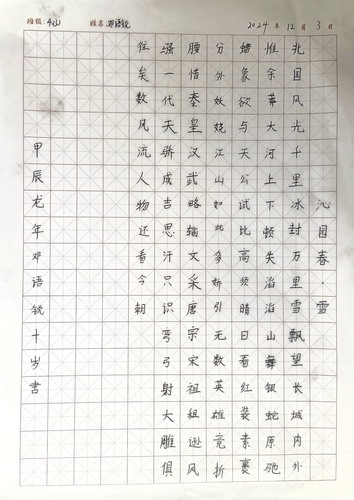 班级:4(2) 姓名:邓语锐 2024年12月3日
沁园春·雪
北国风光千里冰封万里雪飘望长城内外
惟余莽大河上下顿失滔滔山舞银蛇原驰
蜡象欲与天公试比高须晴日看红装素裹
分外妖娆江山如此多娇引无数英雄竞折
腰惜秦皇汉武略输文采唐宗宋祖稍逊风
骚一代天骄成吉思汗只识弯弓射大雕俱
往矣数风流人物还看今朝
甲辰龙年邓语锐十岁书